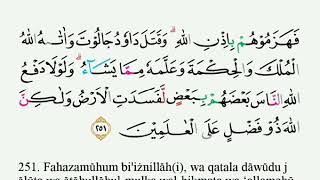 فَهَزَمُوْهُمْ بِاِذْنِ اللّٰهِ ۗوَقَتَلَ دَاوٗدُ جَالُوْتَ وَاٰتٰىهُ اللّٰهُ
الْمُلْكَ وَالْحِكْمَةَ وَعَلَّمَهٗ مِمَّا يَشَاۤءُ ۗ وَلَوْلَا دَفْعُ
اللّٰهِ النَّاسَ بَعْضَهُمْ بِبَعْضٍ لَّفَسَدَتِ الْاَرْضُ وَلٰكِنَّ
اللّٰهَ ذُوْ فَضْلٍ عَلَى الْعٰلَمِيْنَ ٢٥١
251. Fahazamūhum bi'iżnillāh(i), wa qatala dāwūdu j